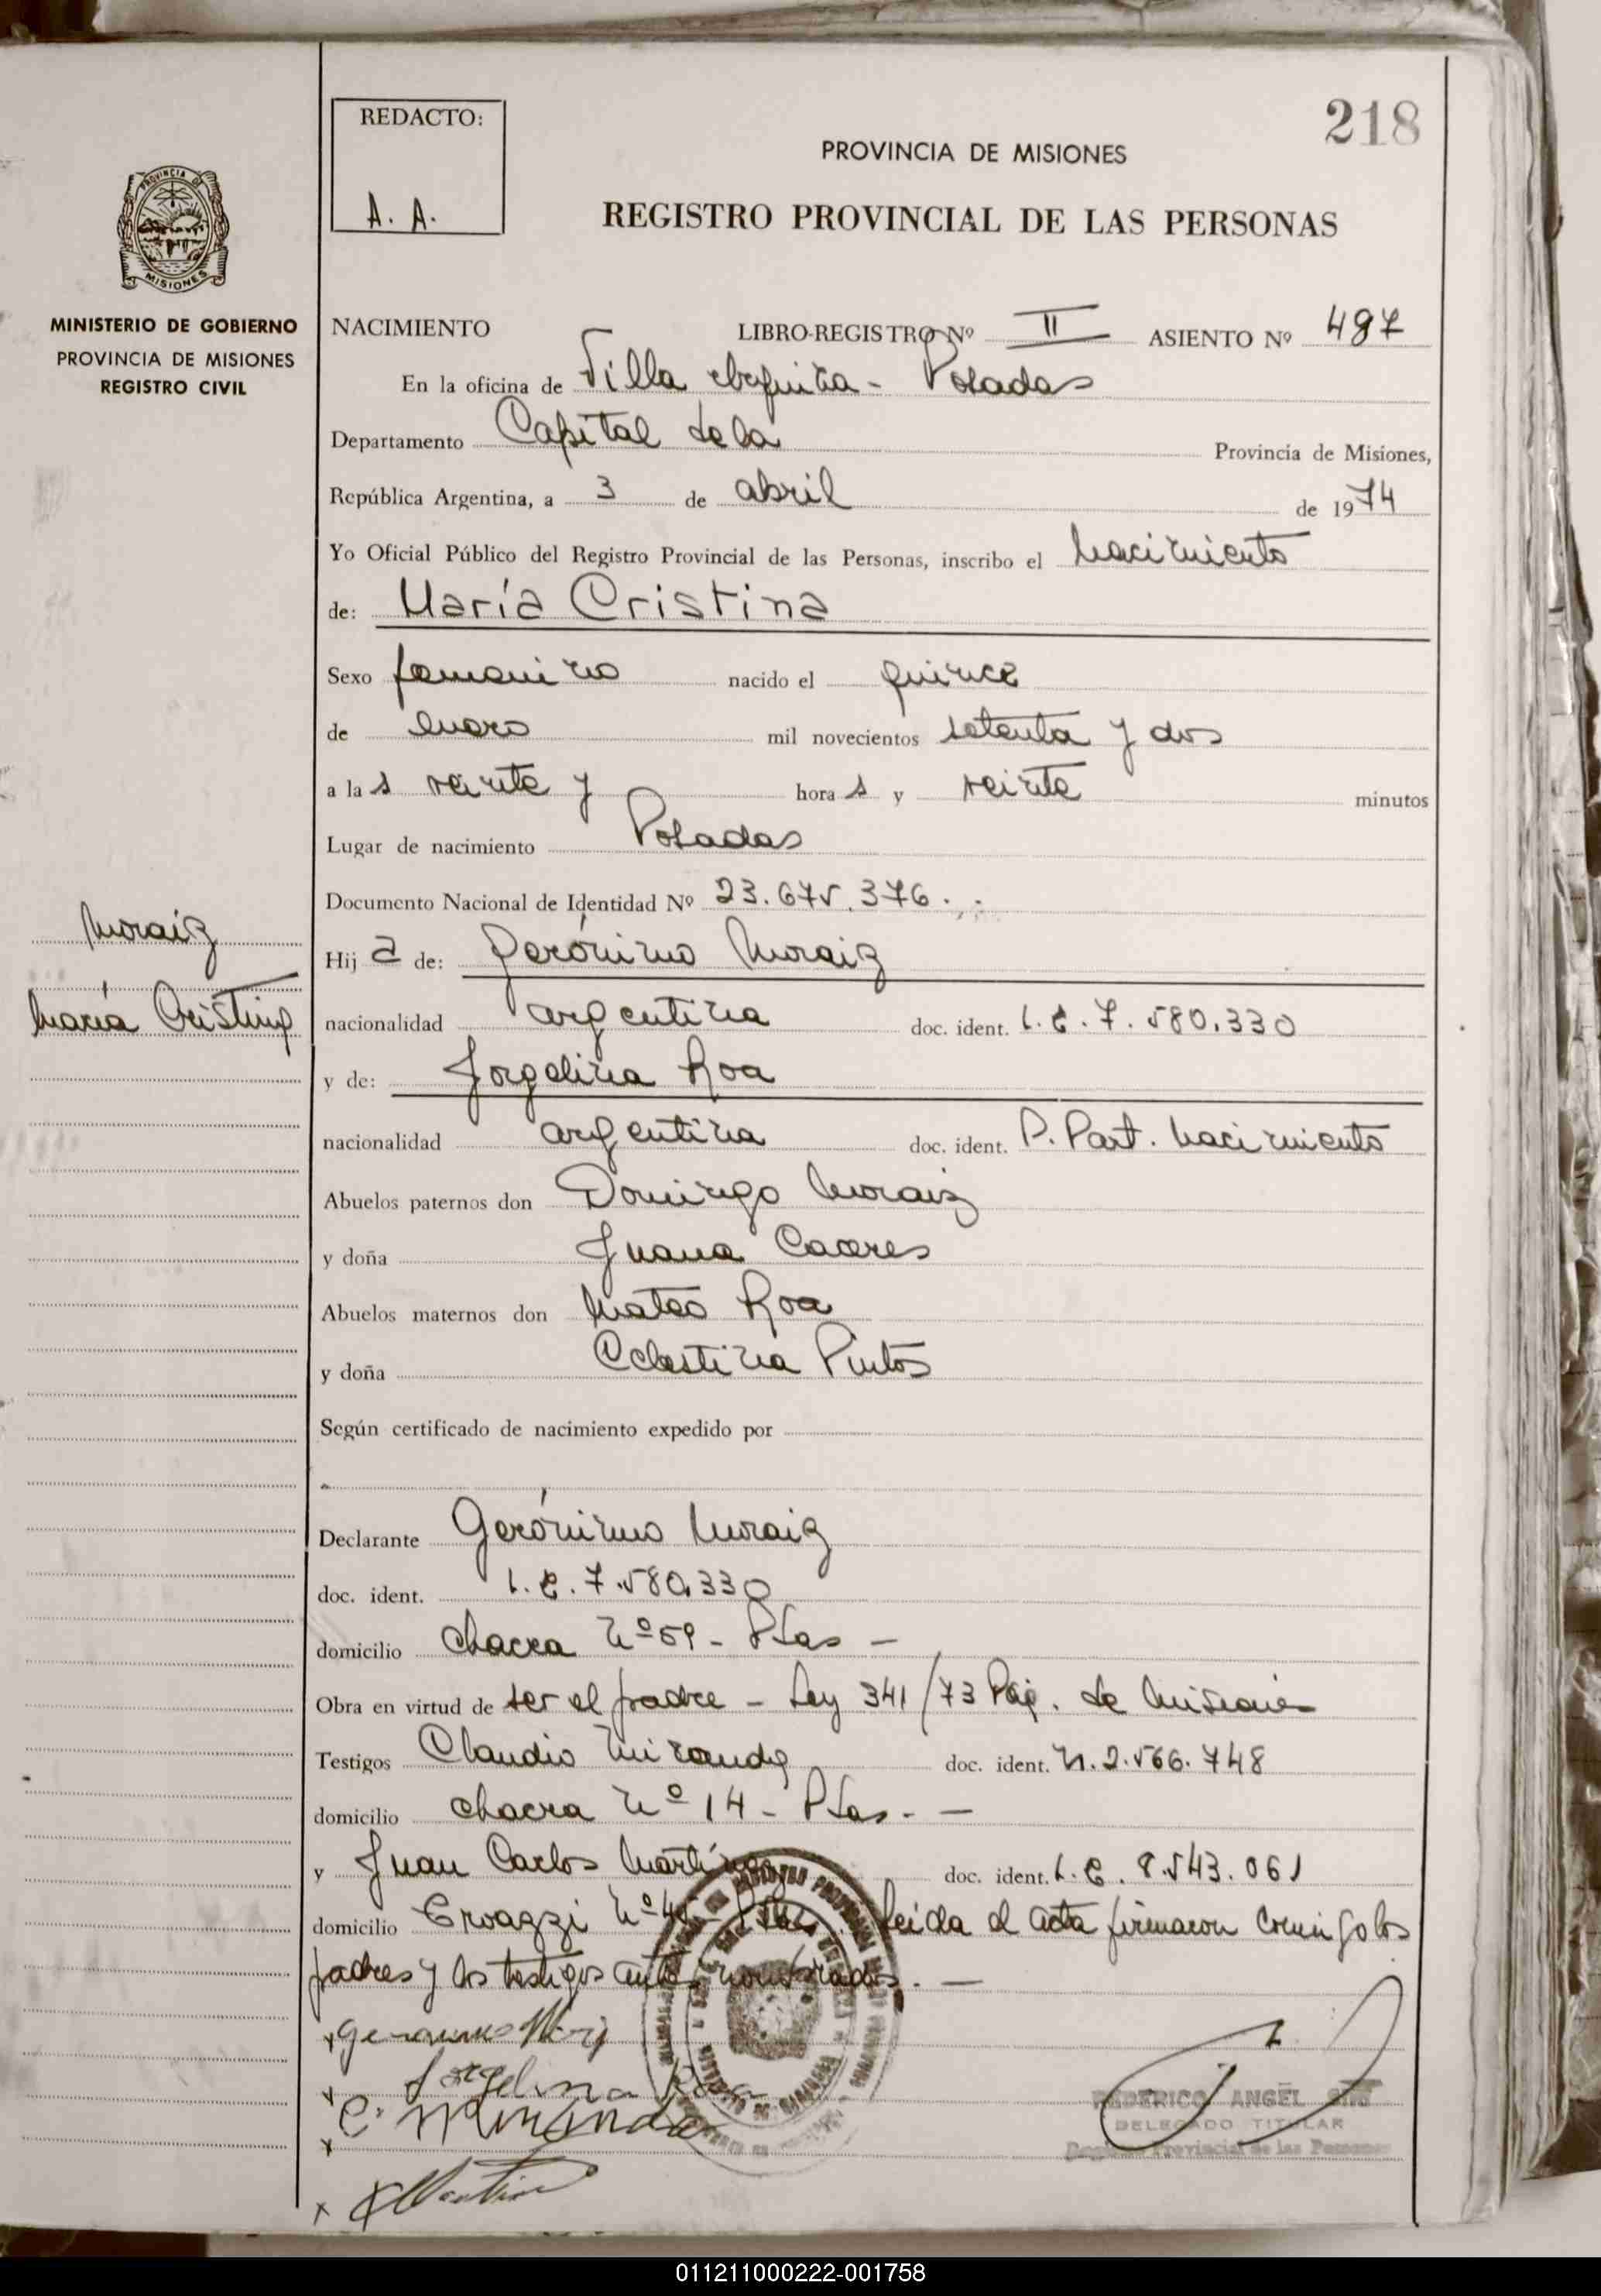 218
REDACTO:
A. A.
PROVINCIA DE MISIONES
REGISTRO PROVINCIAL DE LAS PERSONAS
PROVINCIA DE
MISIONES
MINISTERIO DE GOBIERNO
PROVINCIA DE MISIONES
REGISTRO CIVIL
NACIMIENTO LIBRO-REGISTRO Nº II ASIENTO Nº 487
En la oficina de Villa - Posadas
Departamento Capital de la Provincia de Misiones,
República Argentina, a 3 de abril de 1974
Yo Oficial Público del Registro Provincial de las Personas, inscribo el nacimiento
de: María Cristina
Sexo femenino nacido el quince
de enero mil novecientos setenta y dos
a las veinte y horas y veinte minutos
Lugar de nacimiento Posadas
Documento Nacional de Identidad Nº 23.675.376.
Moraiz
María Cristina
Hija de: Gerónimo Moraiz
nacionalidad argentina doc. ident. L.E. 7.580.330
y de: Jorgelina Roa
nacionalidad argentina doc. ident. P. Part. nacimiento
Abuelos paternos don Domingo Moraiz
y doña Juana Caceres
Abuelos maternos don Mateo Roa
y doña Celestina Pintos
Según certificado de nacimiento expedido por
Declarante Gerónimo Moraiz
doc. ident. L.E. 7.580.330
domicilio chacra Nº 59 - Pdas -
Obra en virtud de ser el padre - Ley 341/73 de Misiones
Testigos Claudio Miranda doc. ident. M. 2.566.748
domicilio chacra Nº 14 - Pdas. -
y Juan Carlos Martínez doc. ident. L.E. 8.543.061
domicilio Nº leida el acta firmaron conmigo los
padres y los testigos antes nombrados. -
x Geronimo
x Jorgelina Roa
C. Miranda
x
x
FEDERICO ANGEL
DELEGADO TITULAR
Registro Provincial de las Personas
011211000222-001758